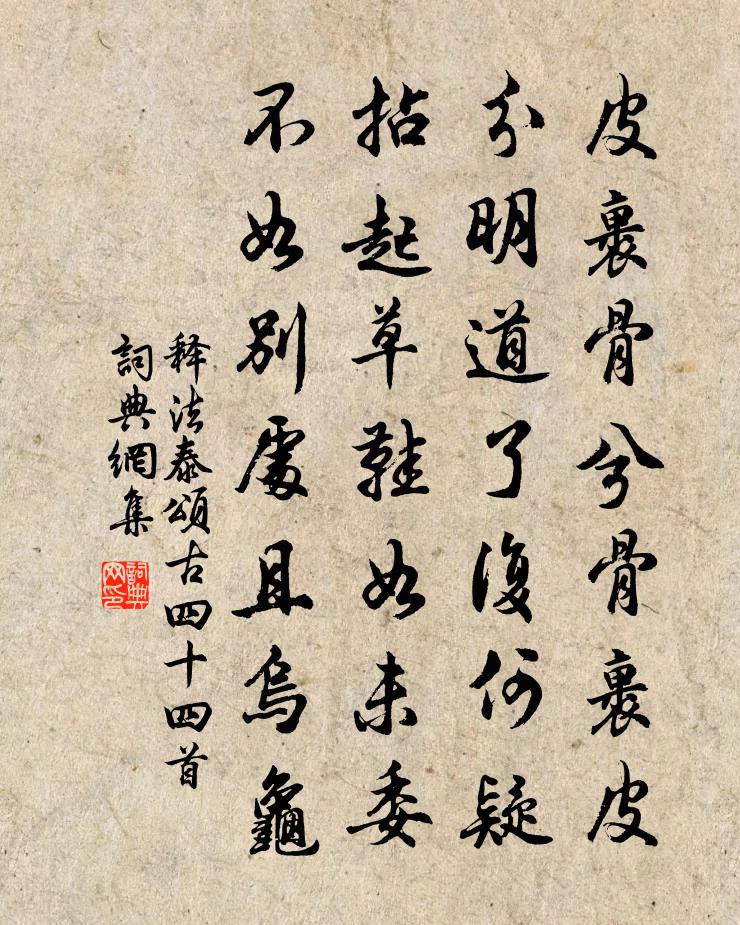 皮裹骨兮骨裹皮
分明道了復何疑
拈起草鞋如未委
不如別處且烏龜
释法泰頌古四十四首
詞典網集
詞典网印